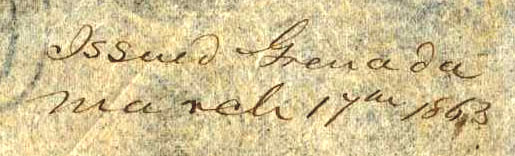 Issued Grenada
March 17th 1863